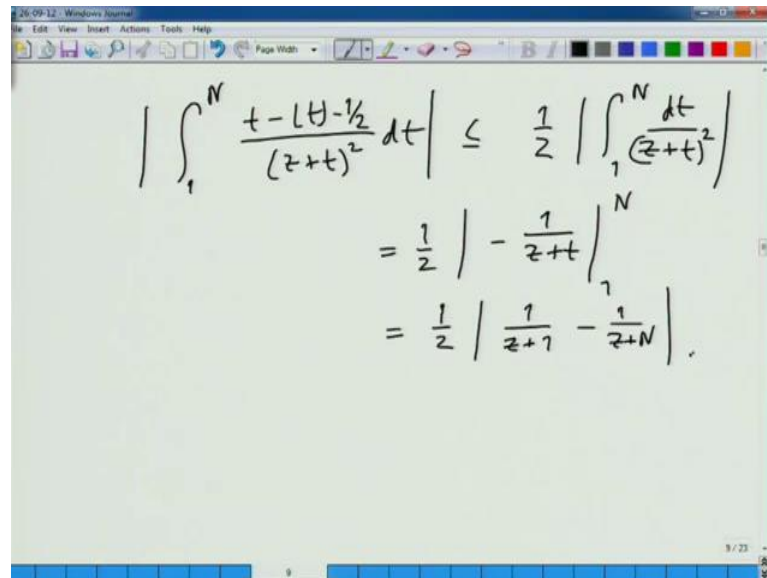 26-09-12 - Windows Journal
File Edit View Insert Actions Tools Help
Page Width B I
| ∫₁ᴺ (t - ⌊t⌋ - 1/2)/(z+t)² dt | ≤ 1/2 | ∫₁ᴺ dt/(z+t)² |
= 1/2 | - 1/(z+t) |₁ᴺ
= 1/2 | 1/(z+1) - 1/(z+N) | .
9 / 23
9